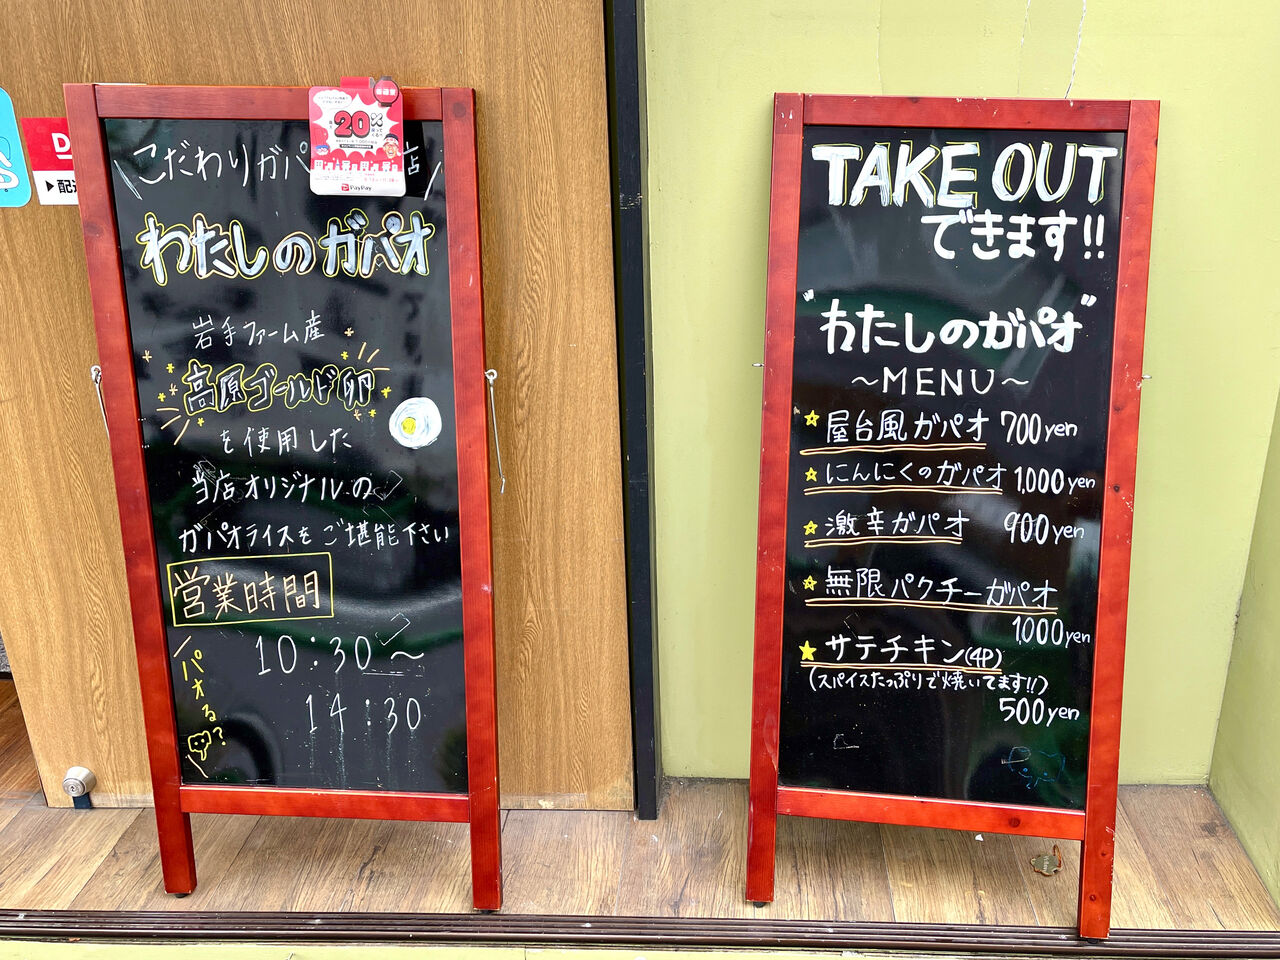 こだわりガパ 店
わたしのガパオ
岩手ファーム産
高原ゴールド卵
を使用した
当店オリジナルの
ガパオライスをご堪能下さい
営業時間
10:30〜
14:30
パオる?
20%
PayPay
D
▶配達
TAKE OUT
できます!!
"わたしのガパオ"
〜MENU〜
屋台風ガパオ 700yen
にんにくのガパオ 1,000yen
激辛ガパオ 900yen
無限パクチーガパオ
1,000yen
サテチキン(4P)
(スパイスたっぷりで焼いてます!!)
500yen